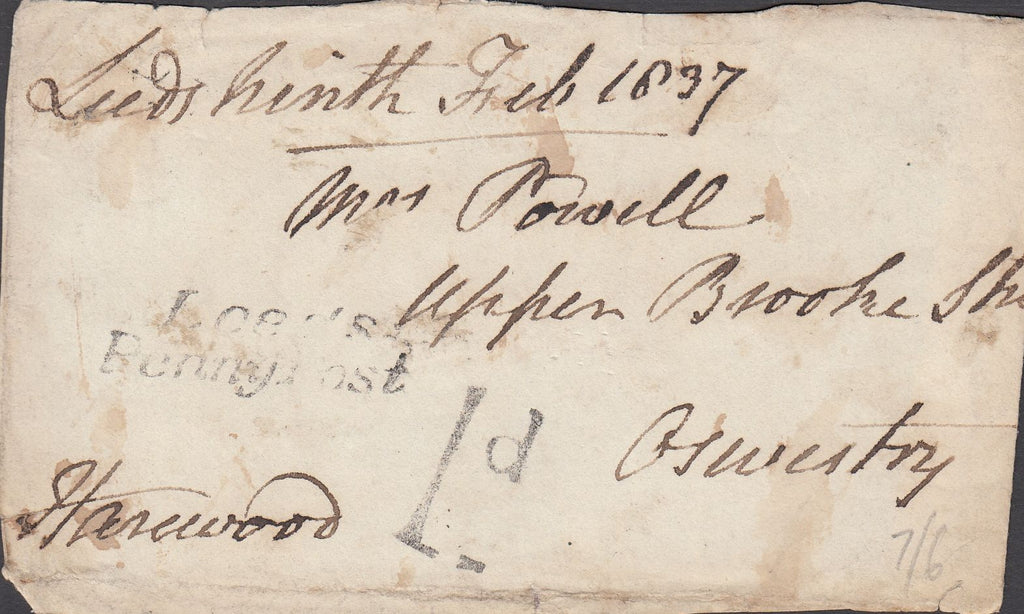 Leeds ninth Feb 1837
Mrs Powell
Upper Brooke Stre
Leeds
Penny Post
1d
Oswestry
Harewood
7/6